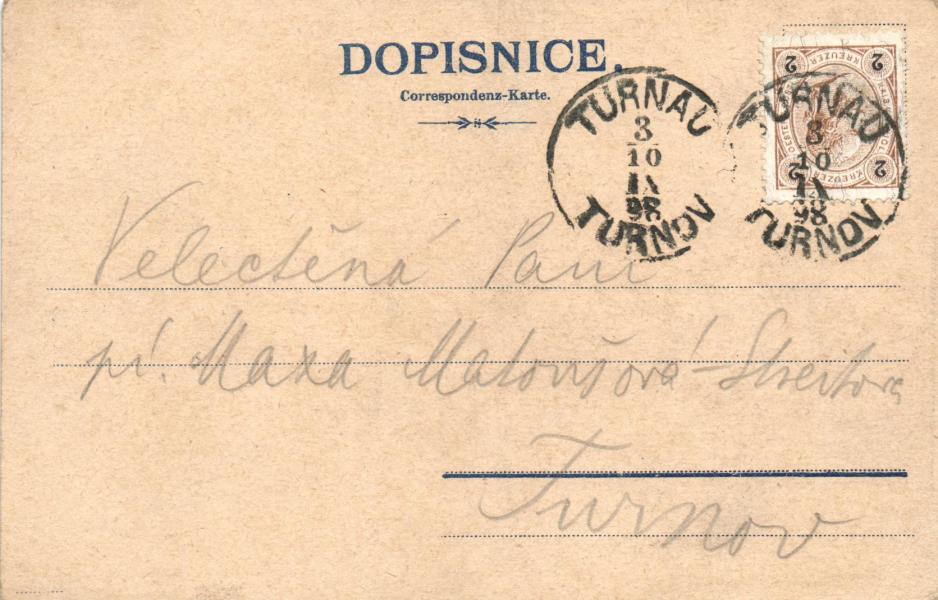 DOPISNICE.
Correspondenz-Karte.
TURNAU
3
10
IX
98
TURNOV
TURNAU
3
10
IX
98
TURNOV
2 KREUZER 2
2 KREUZER 2
Velectěná Paní
pí. Maxa Matoušová-
Turnov